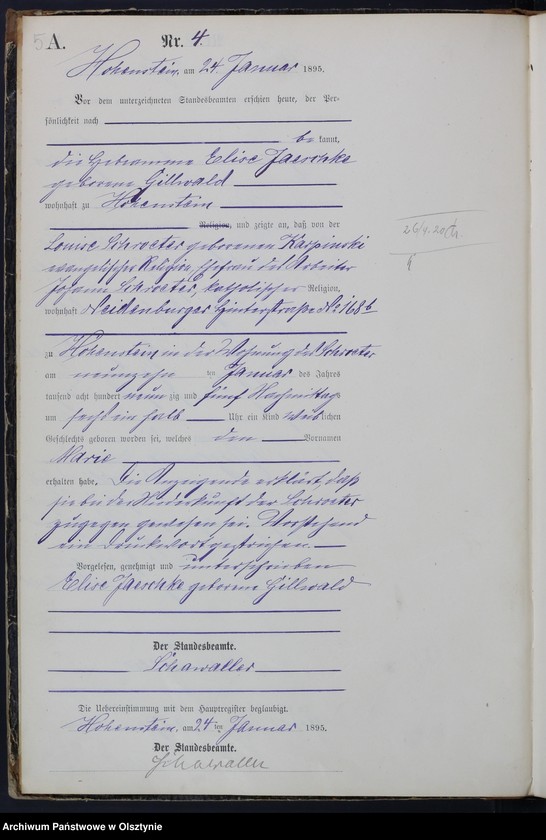 A. Nr. 4.
Hohenstein, am 24. Januar 1895.
Vor dem unterzeichneten Standesbeamten erschien heute, der Per-
sönlichkeit nach
be kannt,
die Hebeamme Elise Jaeschke
geborene Gillwald
wohnhaft zu Hohenstein
Religion, und zeigte an, daß von der
Louise Schroeter geborenen Karpinski
evangelischer Religion, Ehefrau des Arbeiter
Johann Schroeter, katholischer Religion,
wohnhaft Neidenburger Hinterstraße No 168b
zu Hohenstein in der Wohnung des Schroeter
am neunzehn ten Januar des Jahres
tausend acht hundert neun zig und fünf Nachmittags
um sechs ein halb Uhr ein Kind weiblichen
Geschlechts geboren worden sei, welches den Vornamen
Marie
erhalten habe. Die Anzeigende erklärt, daß
sie bei der Niederkunft der Schroeter
zugegen gewesen sei. Vorstehend
ein Druckwort gestrichen.
Vorgelesen, genehmigt und unterschrieben
Elise Jaeschke geborene Gillwald
Der Standesbeamte.
Schawaller
Die Uebereinstimmung mit dem Hauptregister beglaubigt.
Hohenstein, am 24 ten Januar 1895.
Der Standesbeamte.
Schawaller
Archiwum Państwowe w Olsztynie